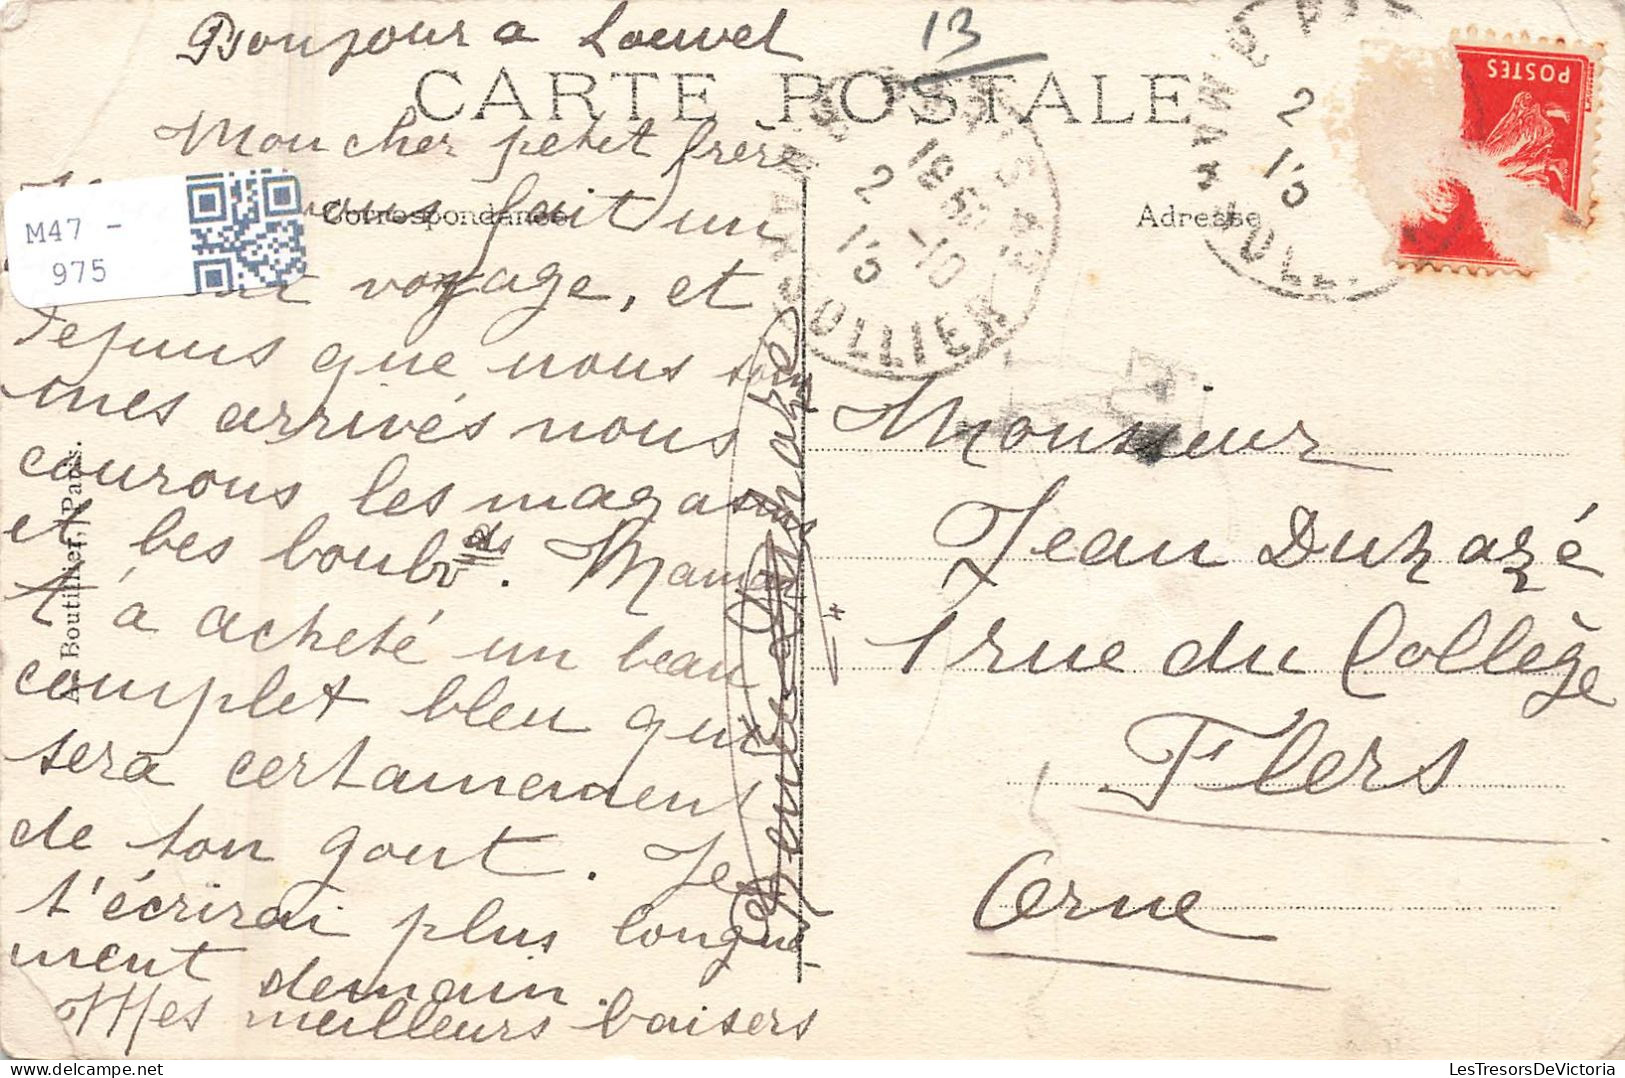 Bonjour a Louvel
13
CARTE POSTALE
Mon cher petit frère
M47 -
975
avons fait un
Correspondance
Adresse
voyage, et
depuis que nous som
mes arrivés nous
courons les magasins
et les boulvds. Maman
t'a acheté un beau
complet bleu qui
sera certainement
de ton gout. Je
t'écrirai plus longue
ment demain.
Mes meilleurs baisers
A. Boutillier, Paris.
POSTES
PARIS 43
R. MARX DULLIER
18 60
2 -10
Monsieur
Jean Duhazé
1 rue du Collège
Flers
Orne
LesTresorsDeVictoria